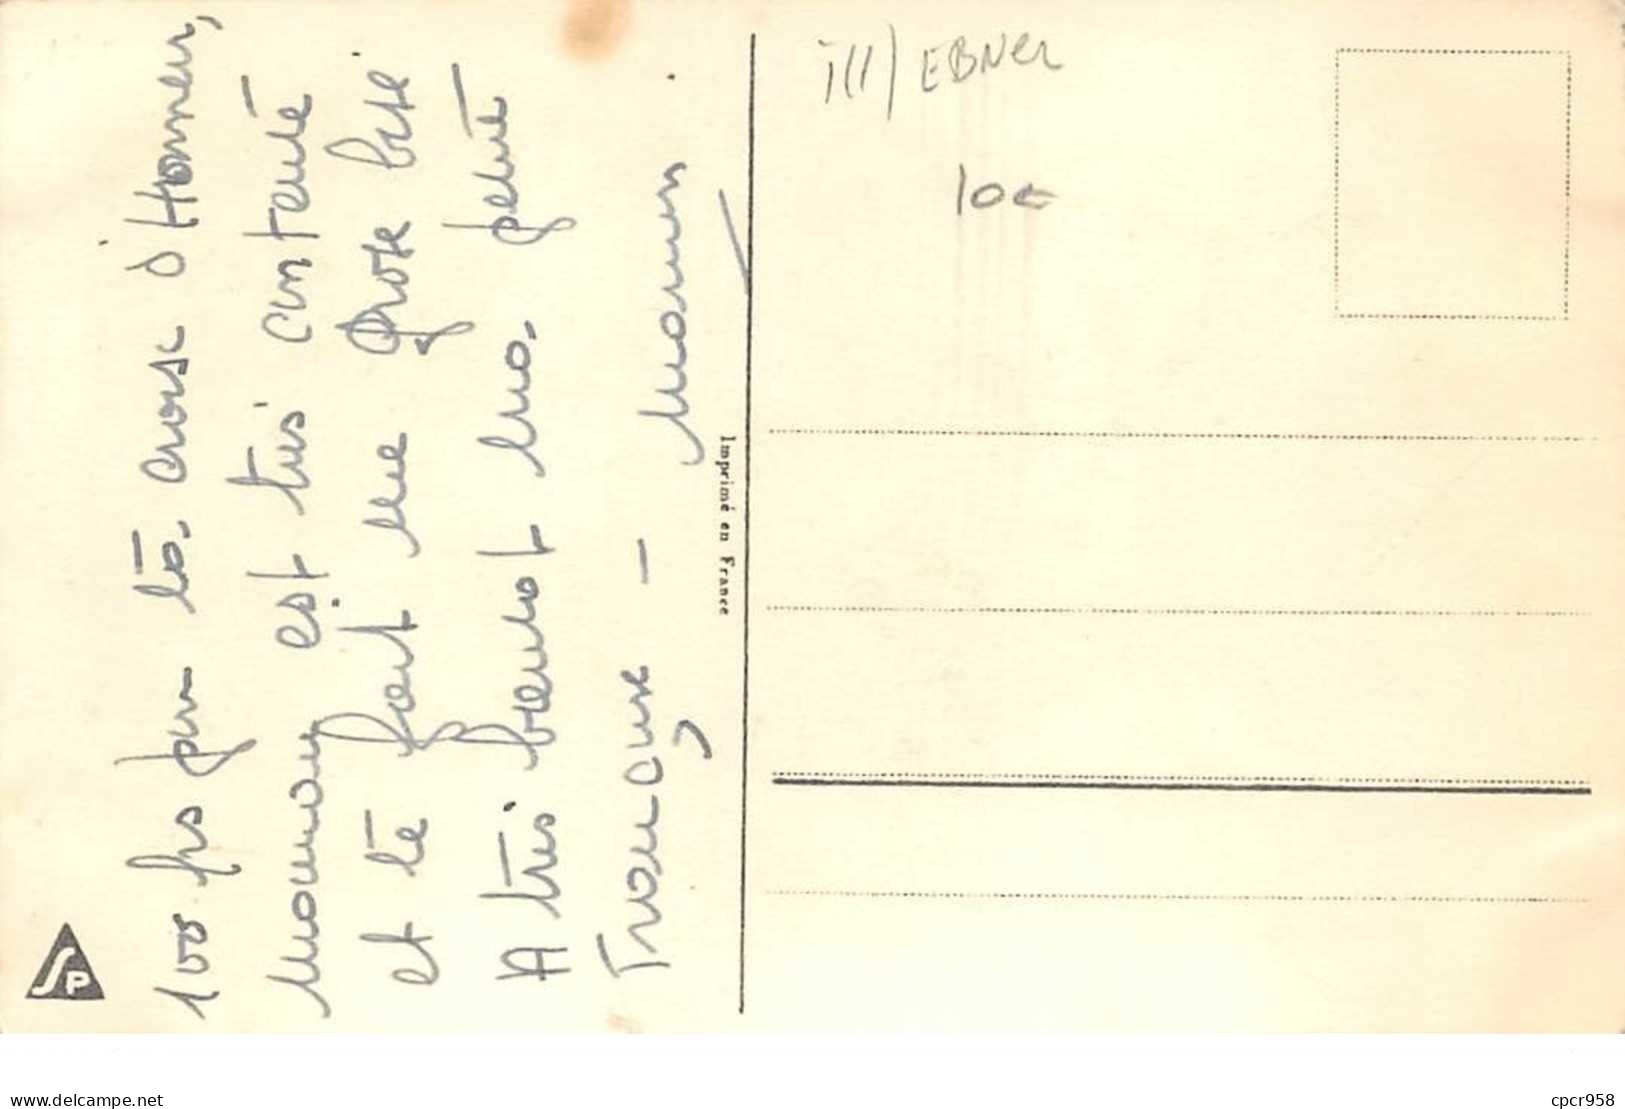 100 frs pour ta croix d'Honneur,
Maman est très contente
et te fait une grosse bise
A très bientôt ma petite
Françoise - Maman
Imprimé en France
SP
ill/ EBNER
10€
www.delcampe.net
cpcr958